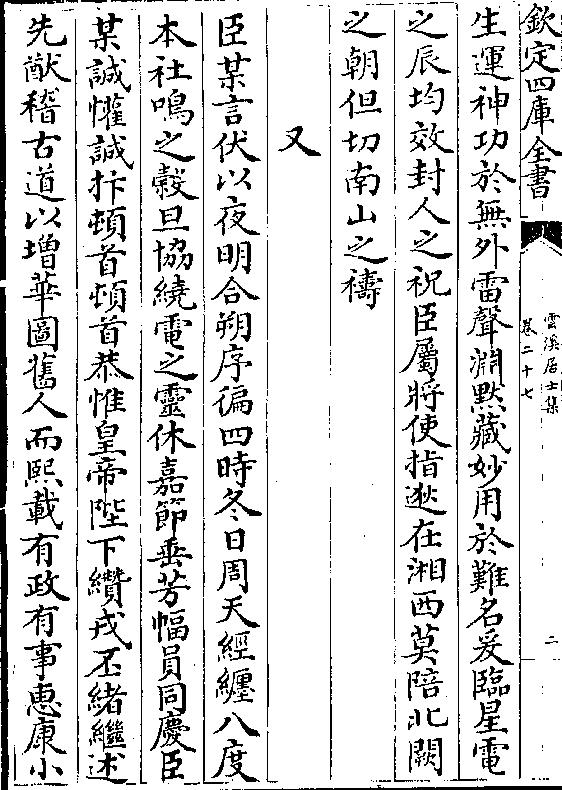 欽定四庫全書
雲溪居士集
卷二十七
二
生運神功於無外雷聲淵默藏妙用於難名爰臨星電
之辰均效封人之祝臣屬將使指逖在湘西莫陪北闕
之朝但切南山之禱
又
臣某言伏以夜明合朔序徧四時冬日周天經纒八度
本社鳴之糓旦協繞電之靈休嘉節垂芳幅員同慶臣
某誠懽誠抃頓首頓首恭惟皇帝陛下纘戎丕緒繼述
先猷稽古道以增華圖舊人而熙載有政有事惠康小